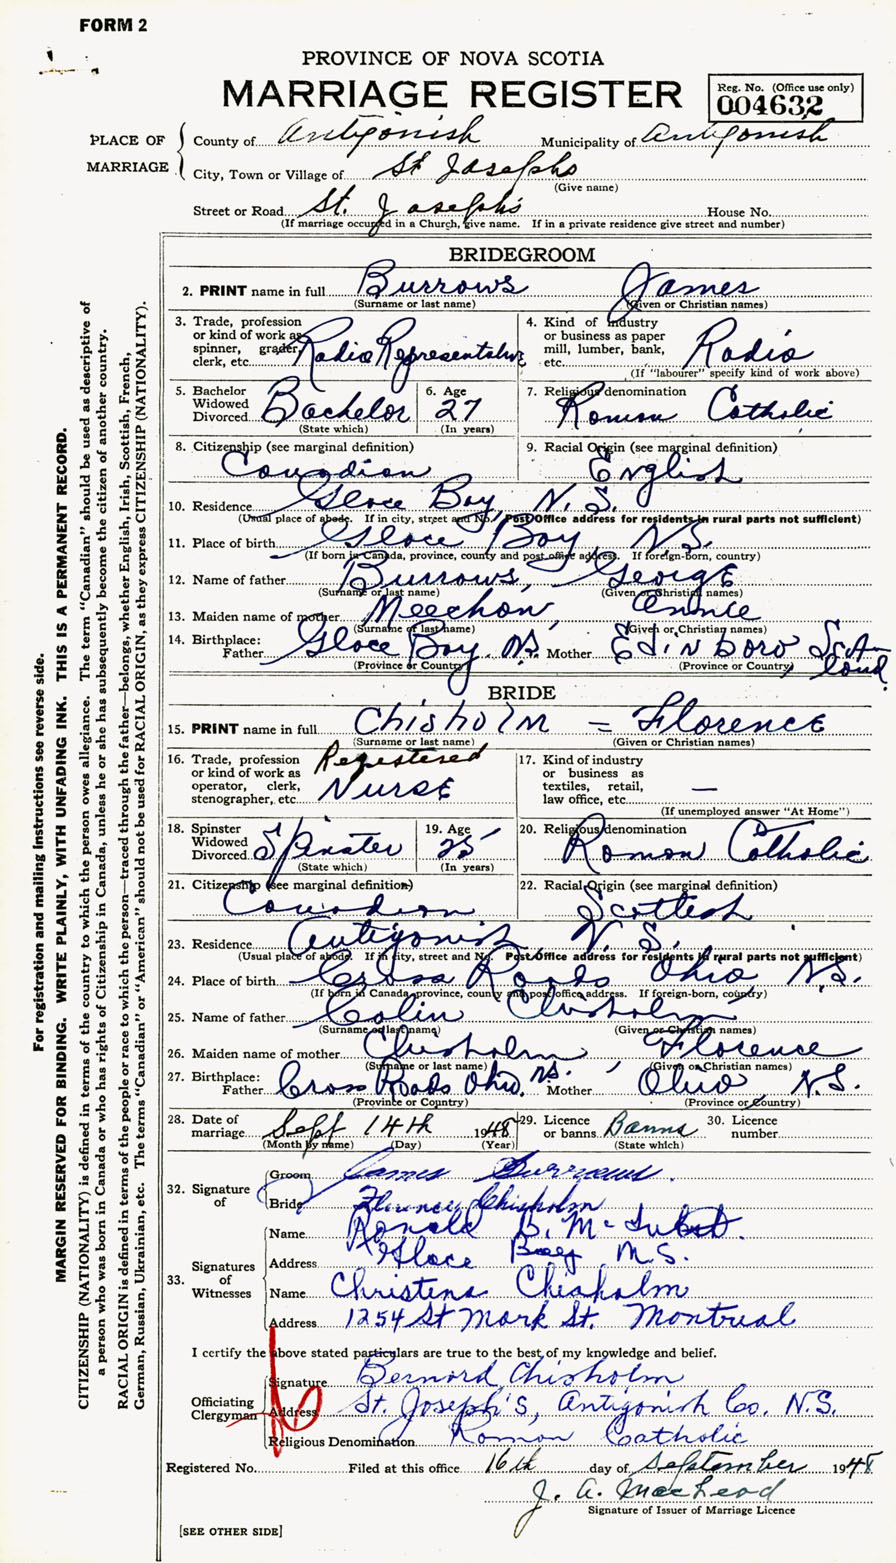 FORM 2
PROVINCE OF NOVA SCOTIA
MARRIAGE REGISTER
Reg. No. (Office use only)
004632
PLACE OF MARRIAGE
County of Antigonish Municipality of Antigonish
City, Town or Village of St Josephs
(Give name)
Street or Road St. Joseph's House No.
(If marriage occupied in a Church, give name. If in a private residence give street and number)
BRIDEGROOM
2. PRINT name in full Burrows James
(Surname or last name) (Given or Christian names)
3. Trade, profession or kind of work as spinner, grader, clerk, etc. Radio Representative
4. Kind of industry or business as paper mill, lumber, bank, etc. Radio
(If "labourer" specify kind of work above)
5. Bachelor Widowed Divorced Bachelor
(State which)
6. Age 27
(In years)
7. Religious denomination Roman Catholic
8. Citizenship (see marginal definition)
Canadian
9. Racial Origin (see marginal definition)
English
10. Residence Glace Bay, N. S.
(Usual place of abode. If in city, street and No. Post Office address for residents in rural parts not sufficient)
11. Place of birth Glace Bay N.S.
(If born in Canada, province, county and post office address. If foreign-born, country)
12. Name of father Burrows, George
(Surname or last name) (Given or Christian names)
13. Maiden name of mother Meechan, Annie
(Surname or last name) (Given or Christian names)
14. Birthplace: Father Glace Bay, N.S. Mother Edinboro Scotland
(Province or Country) (Province or Country)
BRIDE
15. PRINT name in full Chisholm = Florence
(Surname or last name) (Given or Christian names)
16. Trade, profession or kind of work as operator, clerk, stenographer, etc. Registered Nurse
17. Kind of industry or business as textiles, retail, law office, etc. —
(If unemployed answer "At Home")
18. Spinster Widowed Divorced Spinster
(State which)
19. Age 25
(In years)
20. Religious denomination Roman Catholic
21. Citizenship (see marginal definition)
Canadian
22. Racial Origin (see marginal definition)
Scottish
23. Residence Antigonish N. S.
(Usual place of abode. If in city, street and No. Post Office address for residents in rural parts not sufficient)
24. Place of birth Cross Roads Ohio N.S.
(If born in Canada, province, county and post office address. If foreign-born, country)
25. Name of father Colin Chisholm
(Surname or last name) (Given or Christian names)
26. Maiden name of mother Chisholm, Florence
(Surname or last name) (Given or Christian names)
27. Birthplace: Father Cross Roads Ohio, N.S. Mother Ohio N.S.
(Province or Country) (Province or Country)
28. Date of marriage Sept 14th 1948
(Month by name) (Day) (Year)
29. Licence or banns Banns
(State which)
30. Licence number
32. Signature of
Groom James Burrows.
Bride Florence Chisholm
33. Signatures of Witnesses
Name Ronald B. Mc
Address Glace Bay N.S.
Name Christena Chisholm
Address 1254 St Mark St. Montreal
I certify the above stated particulars are true to the best of my knowledge and belief.
Officiating Clergyman
Signature Bernard Chisholm
Address St. Joseph's, Antigonish Co. N.S.
Religious Denomination Roman Catholic
Registered No. Filed at this office 16th day of September 1948
J. A. MacLeod
Signature of Issuer of Marriage Licence
[SEE OTHER SIDE]
For registration and mailing instructions see reverse side.
MARGIN RESERVED FOR BINDING. WRITE PLAINLY, WITH UNFADING INK. THIS IS A PERMANENT RECORD.
CITIZENSHIP (NATIONALITY) is defined in terms of the country to which the person owes allegiance. The term "Canadian" should be used as descriptive of
a person who was born in Canada or who has rights of Citizenship in Canada, unless he or she has subsequently become the citizen of another country.
RACIAL ORIGIN is defined in terms of the people or race to which the person—traced through the father—belongs, whether English, Irish, Scottish, French,
German, Russian, Ukrainian, etc. The terms "Canadian" or "American" should not be used for RACIAL ORIGIN, as they express CITIZENSHIP (NATIONALITY).